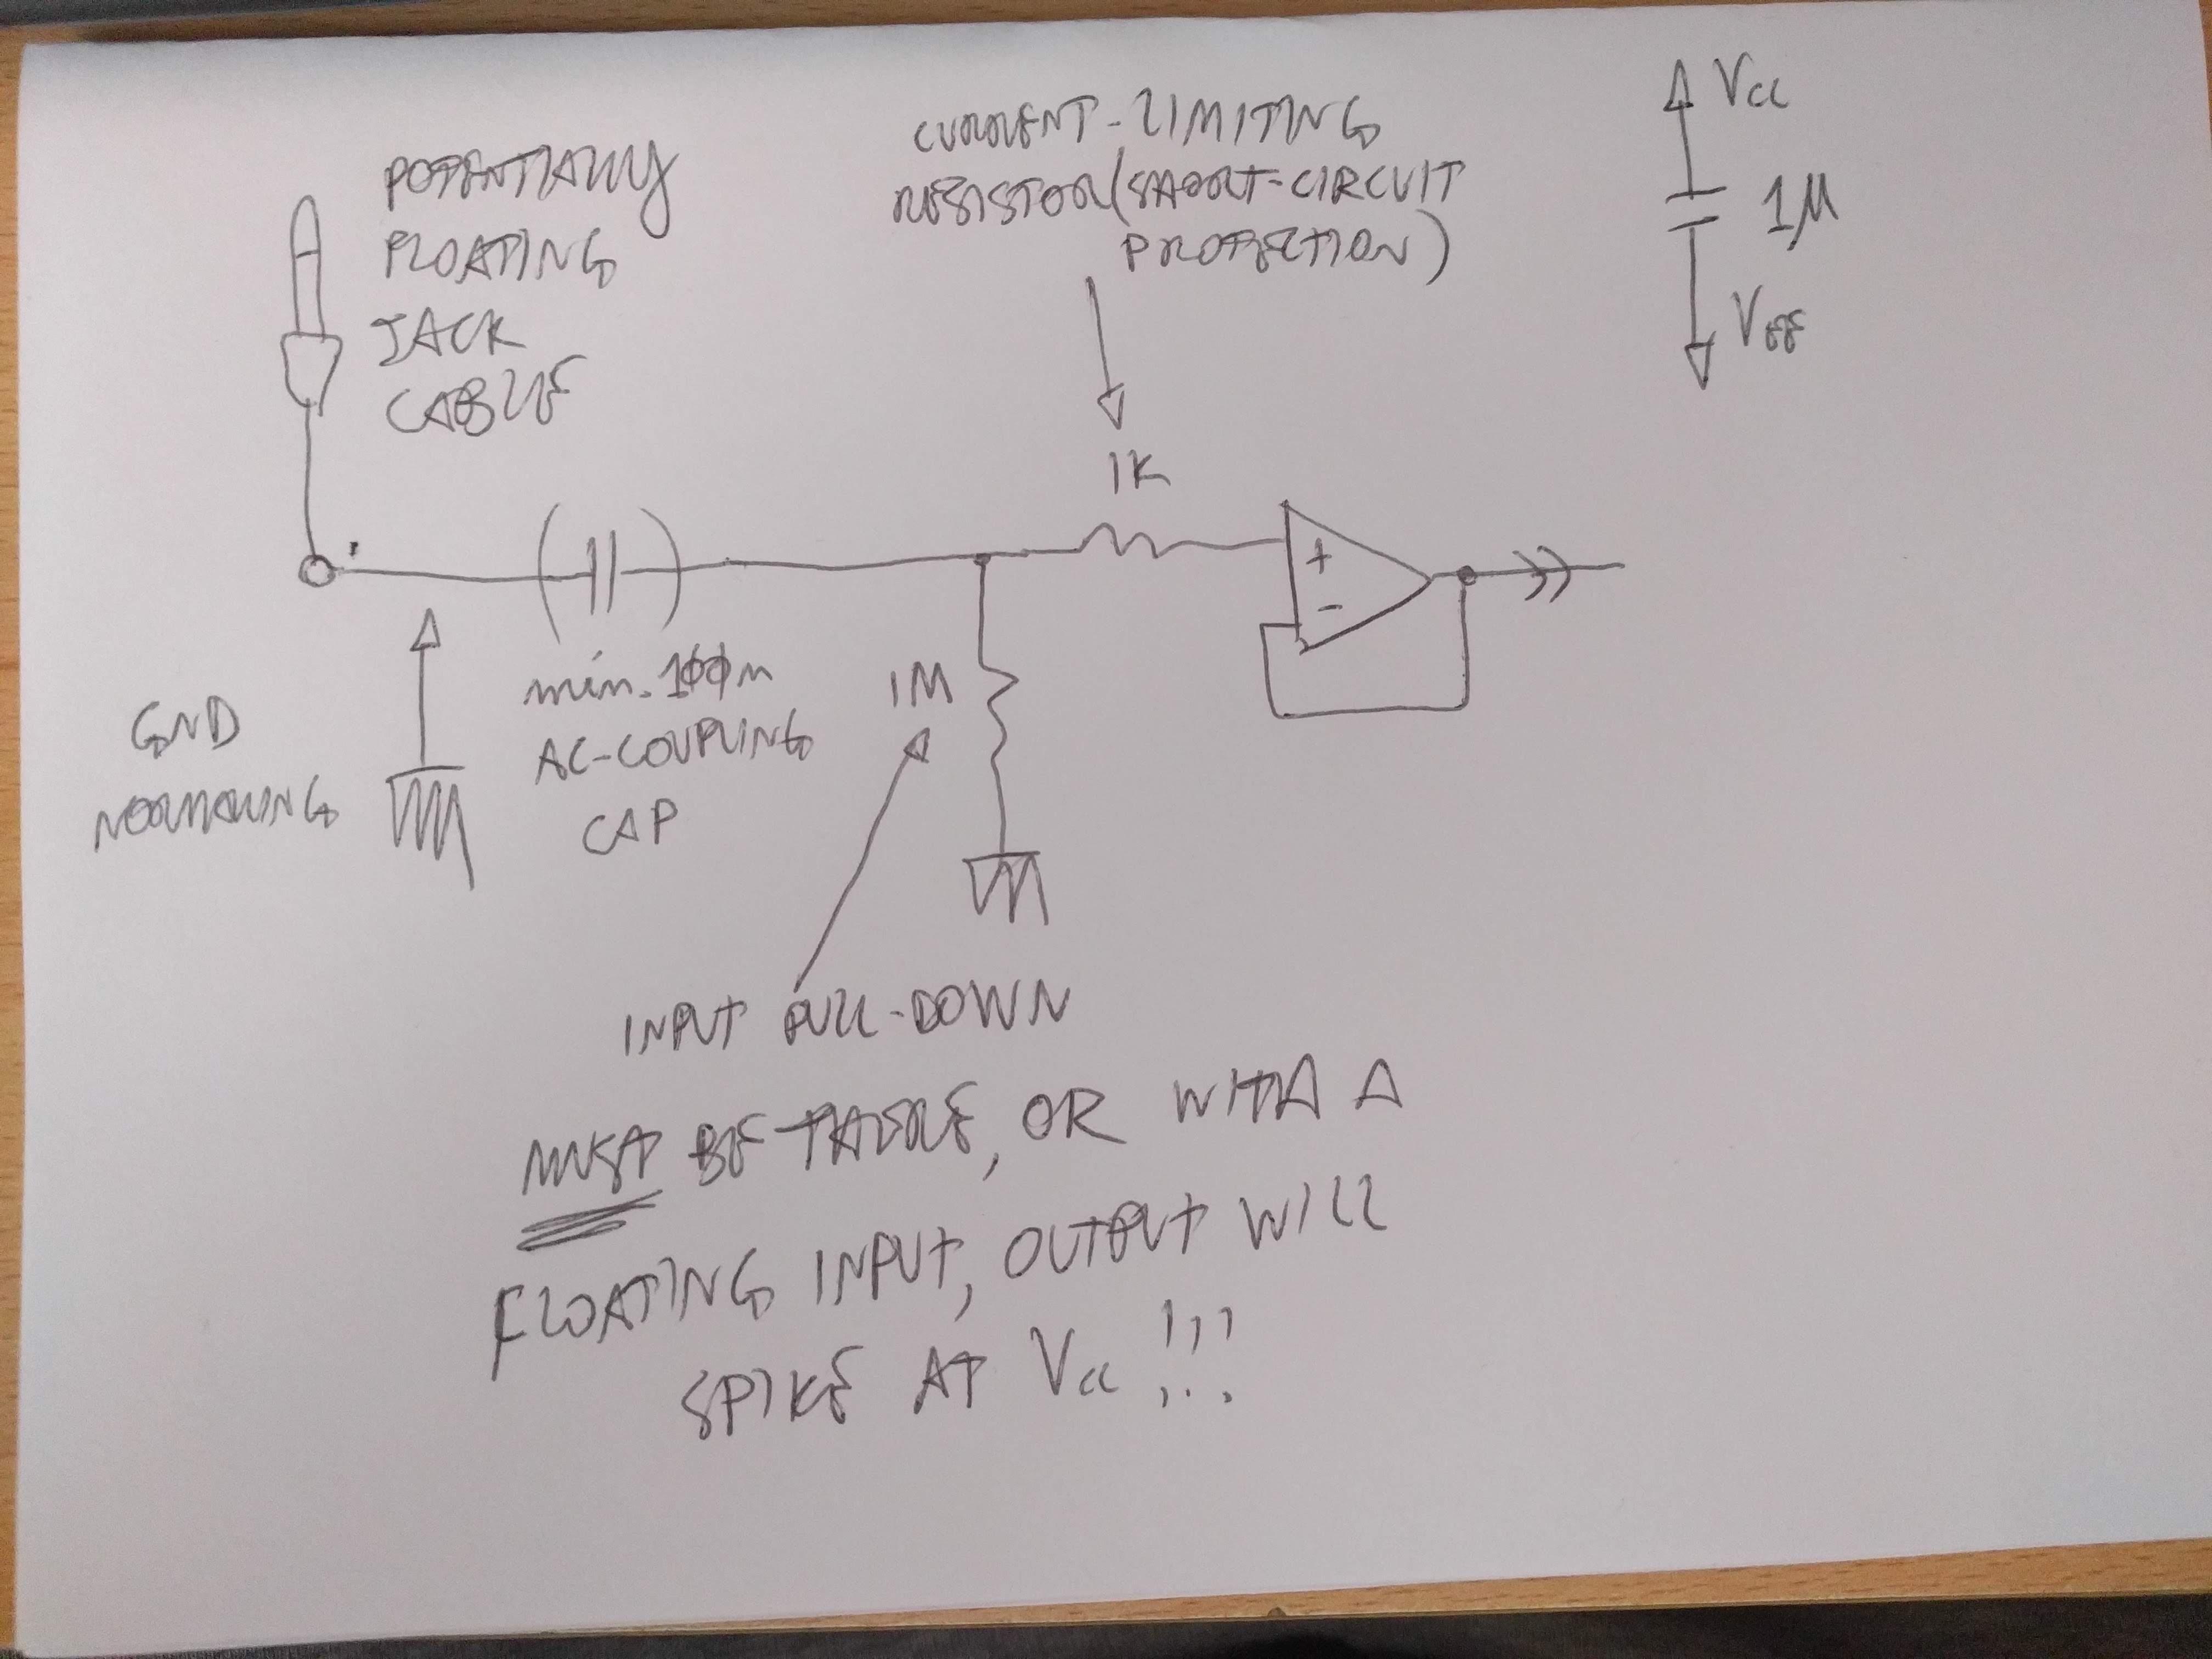 POTENTIALLY
FLOATING
JACK
CABLE
CURRENT-LIMITING
RESISTOR (SHORT-CIRCUIT
PROTECTION)
Vcc
1µ
VEE
1K
+
-
GND
NORMALLING
min. 100n
AC-COUPLING
CAP
1M
INPUT PULL-DOWN
MUST BE THERE, OR WITH A
FLOATING INPUT, OUTPUT WILL
SPIKE AT Vcc !!!